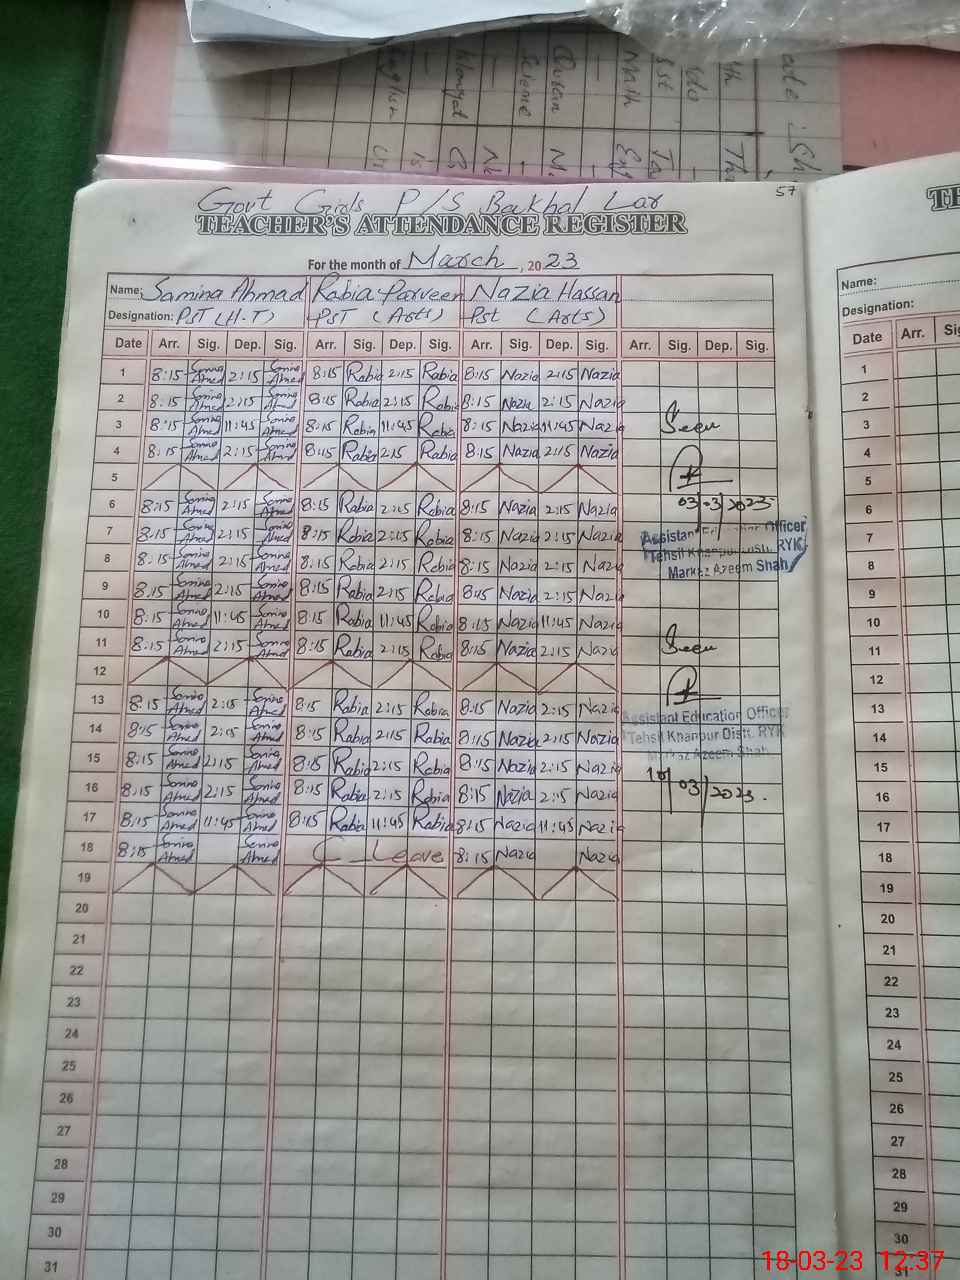 Govt Girls P/S Baukhal Lar
57
TEACHER'S ATTENDANCE REGISTER
For the month of March, 2023
Name: Samina Ahmad Rabia Parveen Nazia Hassan
Designation: PST (H.T) PST (Arts) Pst (Arts)
Date Arr. Sig. Dep. Sig. Arr. Sig. Dep. Sig. Arr. Sig. Dep. Sig. Arr. Sig. Dep. Sig.
1 8:15 Samina Ahmed 2:15 Samina Ahmed 8:15 Rabia 2:15 Rabia 8:15 Nazia 2:15 Nazia
2 8:15 Samina Ahmed 2:15 Samina Ahmed 8:15 Rabia 2:15 Rabia 8:15 Nazia 2:15 Nazia
3 8:15 Samina Ahmed 11:45 Samina Ahmed 8:15 Rabia 11:45 Rabia 8:15 Nazia 11:45 Nazia Seen
4 8:15 Samina Ahmed 2:15 Samina Ahmed 8:15 Rabia 2:15 Rabia 8:15 Nazia 2:15 Nazia
5
6 8:15 Samina Ahmed 2:15 Samina Ahmed 8:15 Rabia 2:15 Rabia 8:15 Nazia 2:15 Nazia 03/03/2023
7 8:15 Samina Ahmed 2:15 Samina Ahmed 8:15 Rabia 2:15 Rabia 8:15 Nazia 2:15 Nazia
Assistant Education Officer
Tehsil Khanpur Distt. RYK
Markaz Azeem Shah
8 8:15 Samina Ahmed 2:15 Samina Ahmed 8:15 Rabia 2:15 Rabia 8:15 Nazia 2:15 Nazia
9 8:15 Samina Ahmed 2:15 Samina Ahmed 8:15 Rabia 2:15 Rabia 8:15 Nazia 2:15 Nazia
10 8:15 Samina Ahmed 11:45 Samina Ahmed 8:15 Rabia 11:45 Rabia 8:15 Nazia 11:45 Nazia
11 8:15 Samina Ahmed 2:15 Samina Ahmed 8:15 Rabia 2:15 Rabia 8:15 Nazia 2:15 Nazia Seen
12
13 8:15 Samina Ahmed 2:15 Samina Ahmed 8:15 Rabia 2:15 Rabia 8:15 Nazia 2:15 Nazia
Assistant Education Officer
Tehsil Khanpur Distt. RYK
Markaz Azeem Shah
14 8:15 Samina Ahmed 2:15 Samina Ahmed 8:15 Rabia 2:15 Rabia 8:15 Nazia 2:15 Nazia
15 8:15 Samina Ahmed 2:15 Samina Ahmed 8:15 Rabia 2:15 Rabia 8:15 Nazia 2:15 Nazia
16 8:15 Samina Ahmed 2:15 Samina Ahmed 8:15 Rabia 2:15 Rabia 8:15 Nazia 2:15 Nazia 10/03/2023.
17 8:15 Samina Ahmed 11:45 Samina Ahmed 8:15 Rabia 11:45 Rabia 8:15 Nazia 11:45 Nazia
18 8:15 Samina Ahmed Samina Ahmed C_Leave 8:15 Nazia Nazia
19
20
21
22
23
24
25
26
27
28
29
30
31
Name:
Designation:
Date Arr.
1
2
3
4
5
6
7
8
9
10
11
12
13
14
15
16
17
18
19
20
21
22
23
24
25
26
27
28
29
30
31
18-03-23 12:37